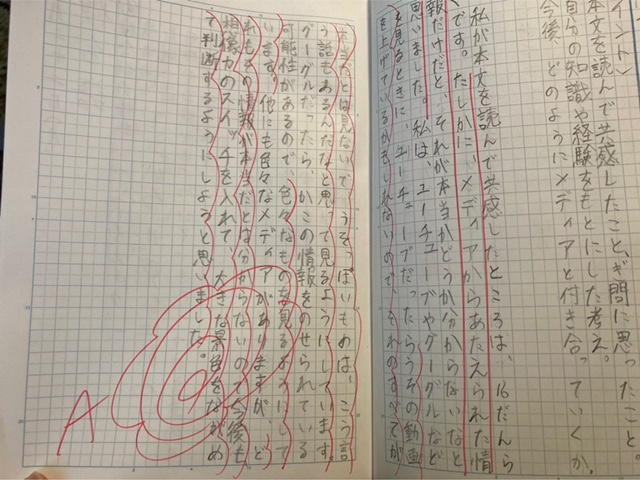 イント）
本文を読んで共感したこと、ぎ問に思ったこと。
自分の知識や経験をもとにした考え。
今後、どのようにメディアと付き合っていくか。
私が本文を読んで共感したところは、16だんら
くです。たしかに、メディアからあたえられた情
報だけだと、それが本当かどうか分からないなと
思いました。私は、ユーチューブやグーグルなど
を見るときに、ユーチューブだったらうその動画
を上げているかもしれないので、それのすべてが
本当だとは見ないで、うそっぽいものは、こう言
う話もあるんだなと思って見るようにしています。
グーグルだったら、かこの情報をのせられている
可能性があるので、色々なものを見るようにして
います。他にも色々なメディアがありますが、ど
れもその情報が本当だとは分からないので、今後も
想像力のスイッチを入れて、大きな景色をながめ
て判断するようにしようと思いました。
A